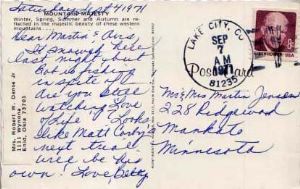 Saturday Sept 4 1971
MOUNTAIN MAJESTY
Winter, Spring, Summer and Autumn are reflected in the majestic beauty of these western mountains.
Dear Martin & Ours,
It snowed here
last night
But
in spite of it.
Are you still
watching Love
of Life - Looks
like Matt Corby's
next trial
will be his
own! Love, Betty
Enid, Okla 73701
LAKE CITY, CO
SEP
7
AM
1971
81235
Post Card
8c
Mr & Mrs Martin Jensen
228 Ridgewood
Mankato
Minnesota